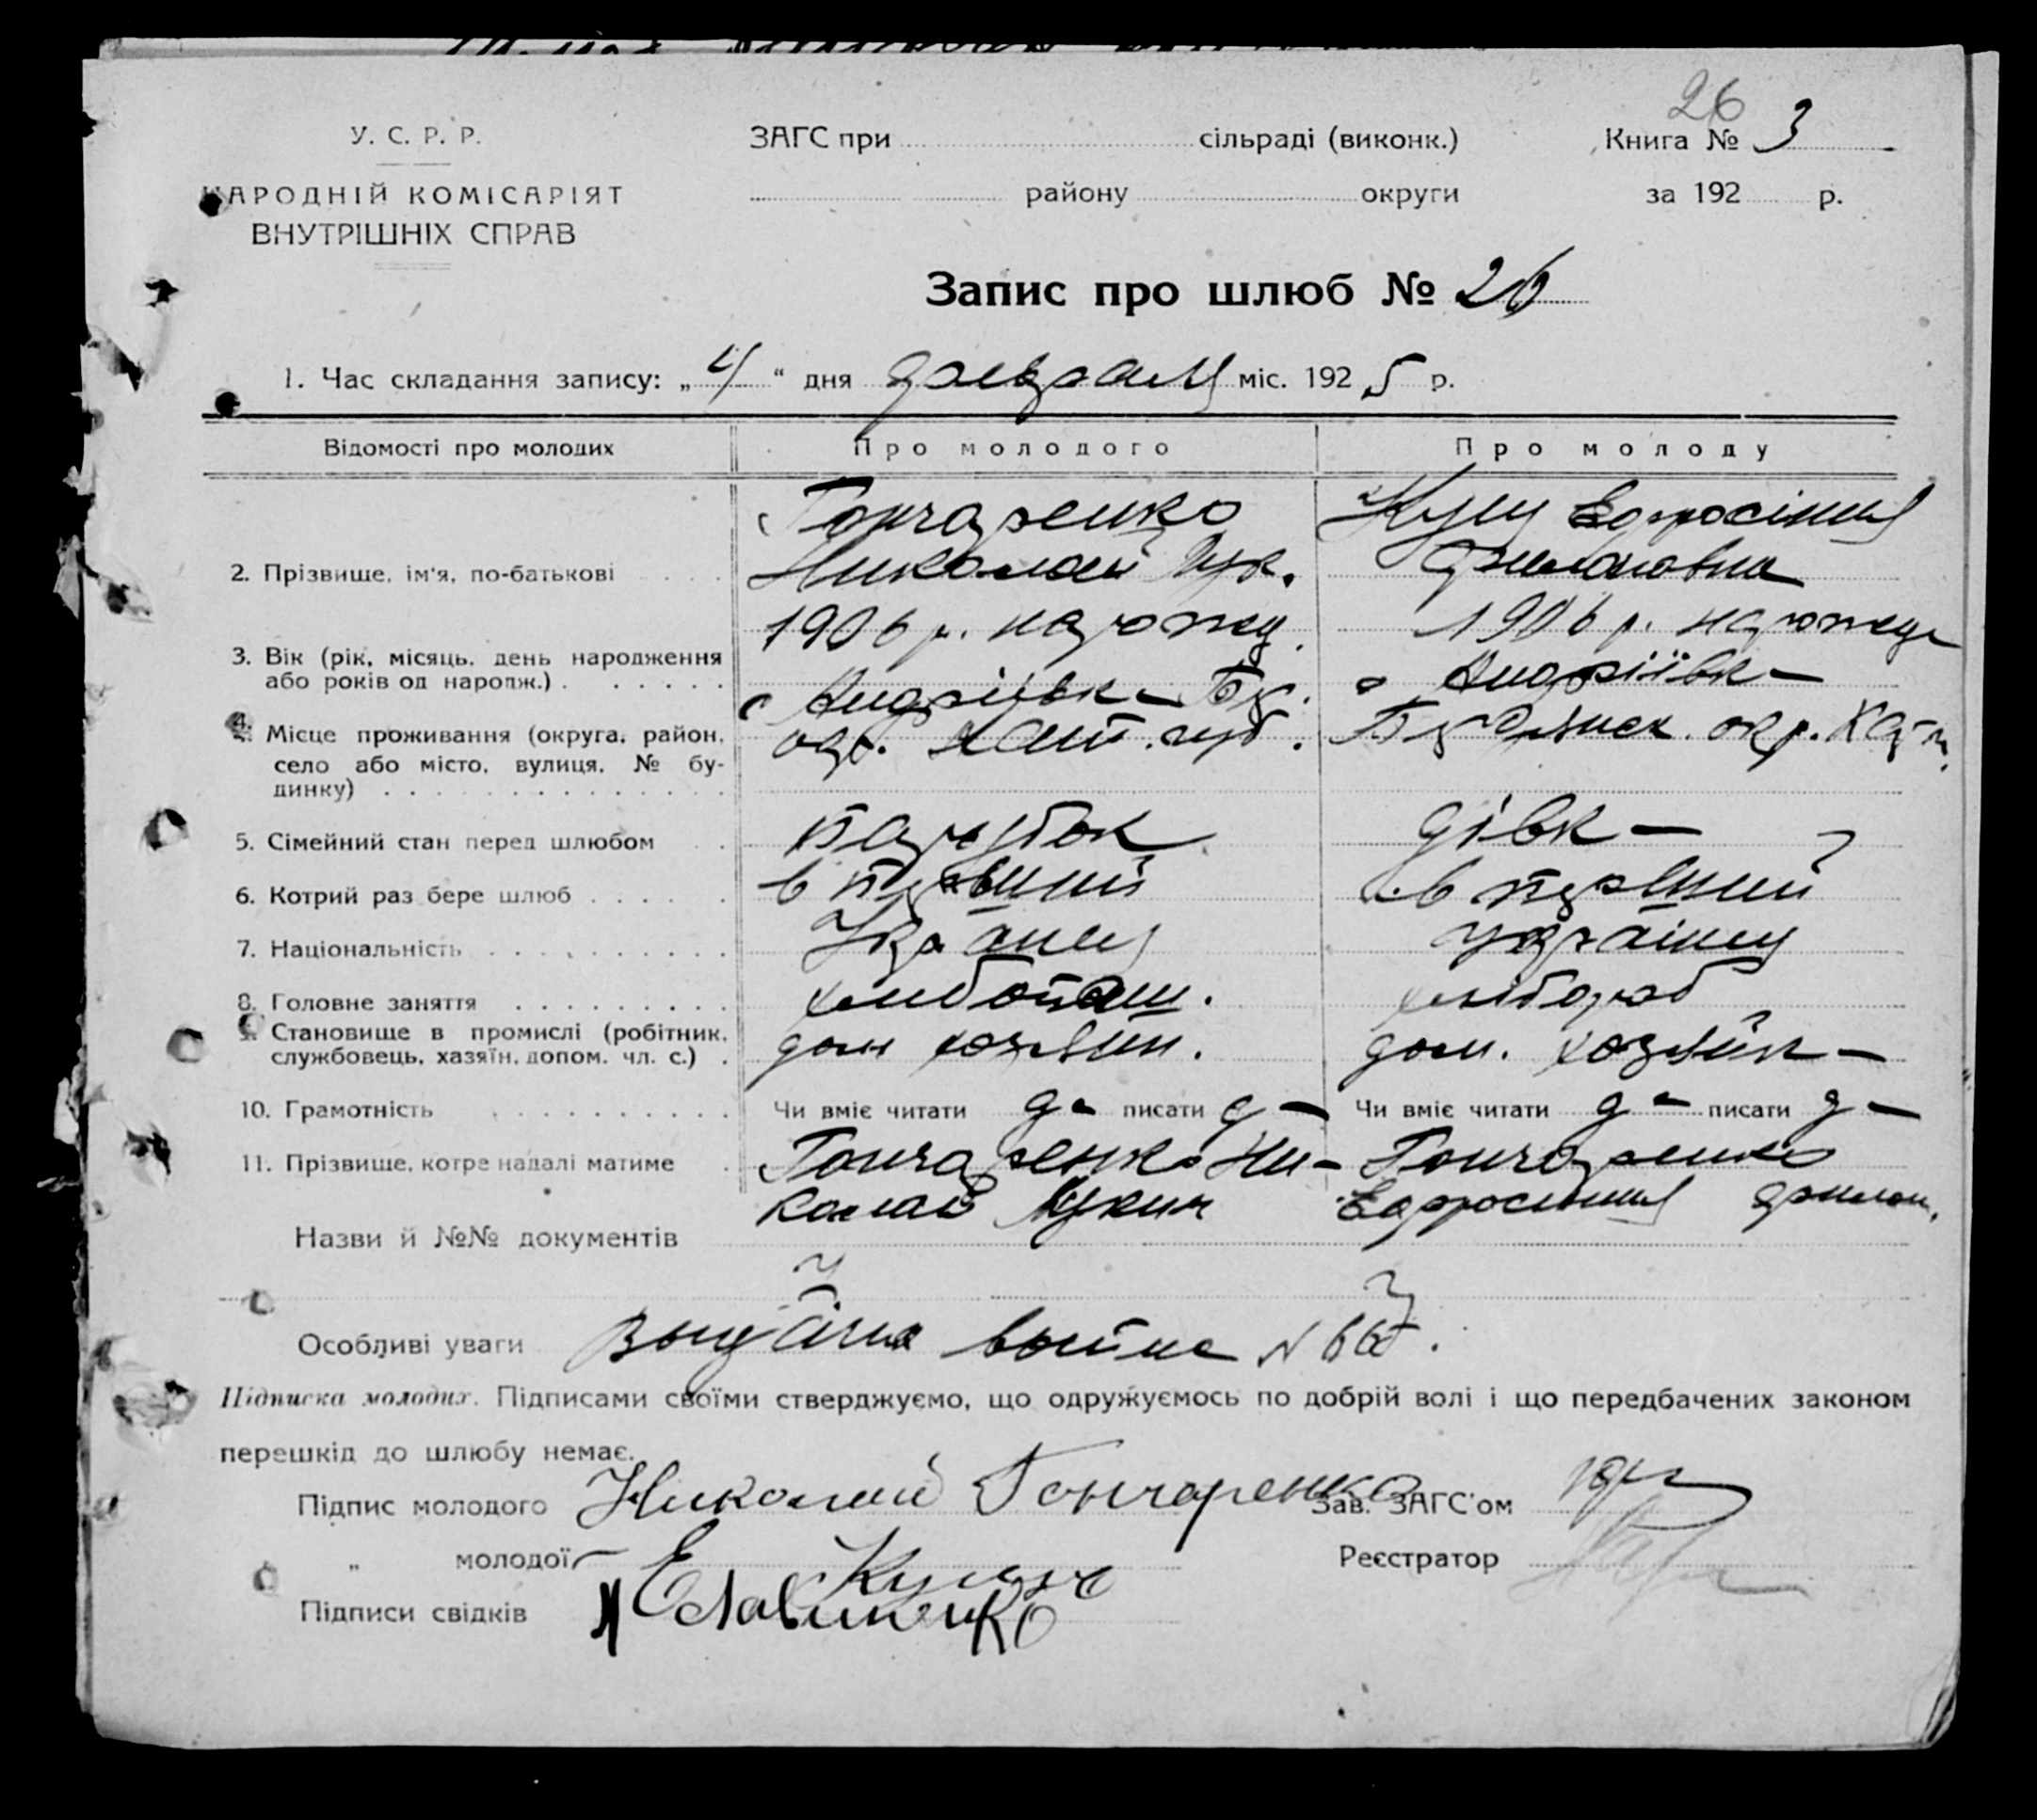 26
У. С. Р. Р.
ЗАГС при сільраді (виконк.)
Книга № 3
НАРОДНІЙ КОМІСАРІЯТ
району округи
за 192 р.
ВНУТРІШНІХ СПРАВ
Запис про шлюб № 26
1. Час складання запису: „4“ дня февраля міс. 1925 р.
Відомості про молодих
Про молодого
Про молоду
2. Прізвище, ім'я, по-батькові
Гончаренко
Николай Лук.
Ефросінія
Филаповна
3. Вік (рік, місяць, день народження
або років од народж.)
1906 р. нарожд.
1906 р. нарожд
4. Місце проживання (округа, район,
село або місто, вулиця, № бу-
динку)
с Андріівк- Бер.
окр. Кат. губ.
с Андріївк-
Бердянск. окр. Катр.
5. Сімейний стан перед шлюбом
парубок
дівк-
6. Котрий раз бере шлюб
в перший
в перший
7. Національність
8. Головне заняття
хлибопаш.
хлібороб
9. Становище в промислі (робітник,
службовець, хазяїн, допом. чл. с.)
дом хозяин.
дом. хозяйк-
10. Грамотність
Чи вміє читати да писати д-
Чи вміє читати да писати д-
11. Прізвище, котре надалі матиме
Гончаренко Ни-
колай Лукич
Гончаренко
Ефросиния Филап.
Назви й №№ документів
Особливі уваги
Підписка молодих. Підписами своїми стверджуємо, що одружуємось по добрій волі і що передбачених законом
перешкід до шлюбу немає.
Підпис молодого Николай Гончаренко
Зав. ЗАГС'ом
„ молодої Е
Реєстратор
Підписи свідків